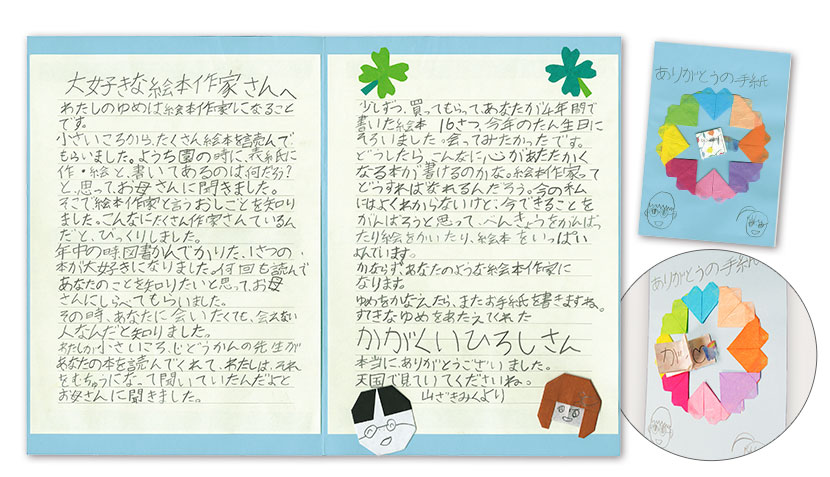 大好きな絵本作家さんへ
わたしのゆめは絵本作家になること
です。
小さいころから、たくさん絵本を読んで
もらいました。ようち園の時に、表紙に
作・絵と、書いてあるのは何だろ?
と、思って、お母さんに聞きました。
そこで絵本作家と言うおしごとを知り
ました。こんなにたくさん作家さんているん
だと、びっくりしました。
年中の時、図書かんでかりた、1さつの
本が大好きになりました。何回も読んで
あなたのことを知りたいと思って、お母
さんにしらべてもらいました。
その時、あなたに会いたくても、会えない
人なんだと知りました。
わたしが小さいころ、じどうかんの先生が
あなたの本を読んでくれて、わたしは、それ
をむちゅうになって聞いていたんだよと
お母さんに聞きました。
少しずつ、買ってもらって、あなたが4年間で
書いた絵本 16さつ、今年のたん生日に
そろいました。会ってみたかったです。
どうしたら、こんなに心があたたかく
なる本が書けるのかな。絵本作家って
どうすればなれるんだろう。今の私
にはよくわからないけど、今できることを
がんばろうと思って、べんきょうをがんばっ
たり絵をかいたり、絵本をいっぱい
よんでいます。
かならず、あなたのような絵本作家に
なります。
ゆめをかなえたら、またお手紙を書きますね。
すてきなゆめをあたえてくれた
かがくいひろしさん
本当に、ありがとうございました。
天国で見ていてくださいね。
山ざきみくより
ありがとうの手紙
ありがとうの手紙
が